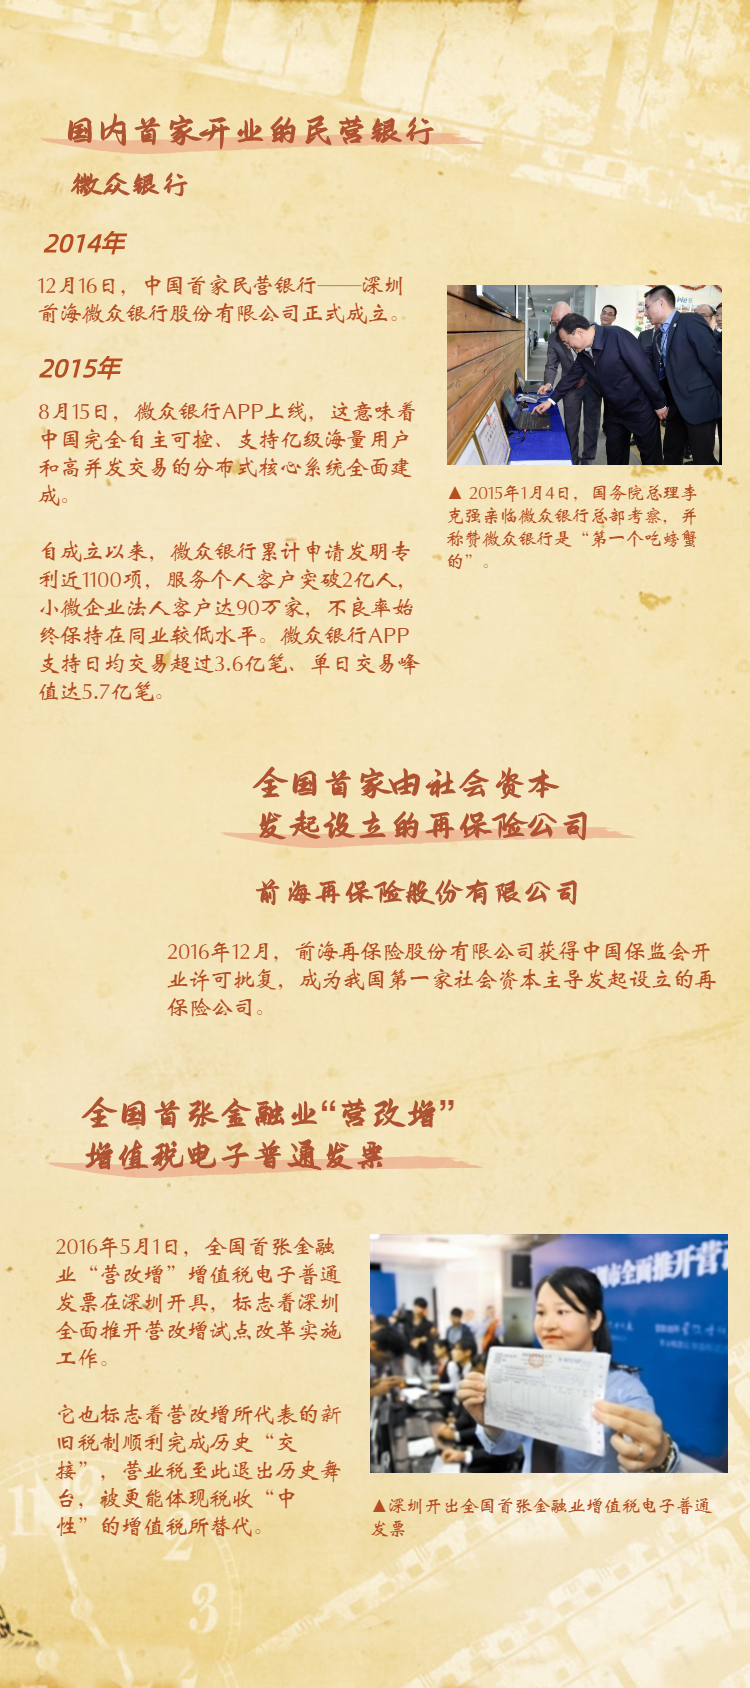 国内首家开业的民营银行
微众银行
2014年
12月16日，中国首家民营银行——深圳
前海微众银行股份有限公司正式成立。
2015年
8月15日，微众银行APP上线，这意味着
中国完全自主可控、支持亿级海量用户
和高并发交易的分布式核心系统全面建
成。
自成立以来，微众银行累计申请发明专
利近1100项，服务个人客户突破2亿人，
小微企业法人客户达90万家，不良率始
终保持在同业较低水平。微众银行APP
支持日均交易超过3.6亿笔、单日交易峰
值达5.7亿笔。
▲ 2015年1月4日，国务院总理李
克强亲临微众银行总部考察，并
称赞微众银行是“第一个吃螃蟹
的”。
全国首家由社会资本
发起设立的再保险公司
前海再保险股份有限公司
2016年12月，前海再保险股份有限公司获得中国保监会开
业许可批复，成为我国第一家社会资本主导发起设立的再
保险公司。
全国首张金融业“营改增”
增值税电子普通发票
2016年5月1日，全国首张金融
业“营改增”增值税电子普通
发票在深圳开具，标志着深圳
全面推开营改增试点改革实施
工作。
它也标志着营改增所代表的新
旧税制顺利完成历史“交
接”，营业税至此退出历史舞
台，被更能体现税收“中
性”的增值税所替代。
圳市全面推开营
▲深圳开出全国首张金融业增值税电子普通
发票
11
12
2
3